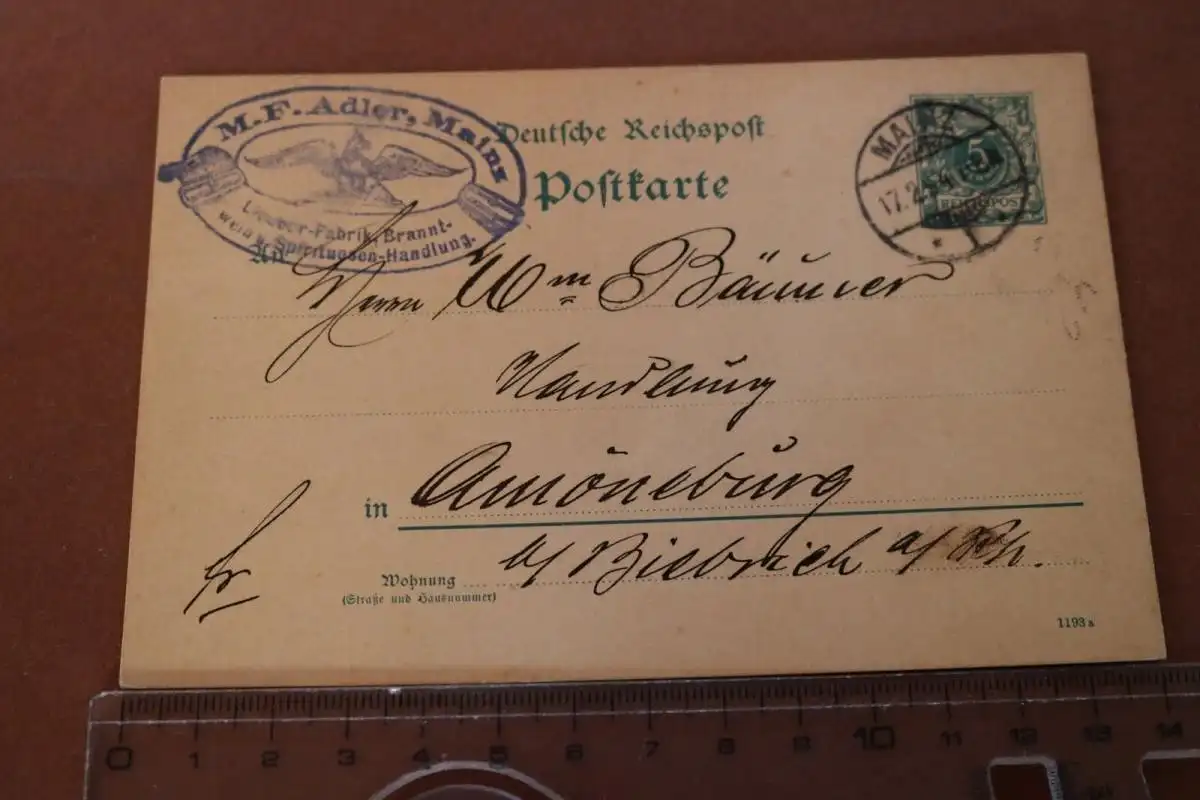 M. F. Adler, Mainz
Liqueur-Fabrik, Brannt-
wein & Spirituosen-Handlung.
Deutsche Reichspost
Postkarte
MAINZ
17.2.
5
REICHSPOST
An
Herrn Wm Bäumer
Handlung
in Amöneburg
b/ Biebrich a/ Rh.
fr
Wohnung
(Straße und Hausnummer)
1193 a
0 1 2 3 4 5 6 7 8 9 10 11 12 13 14